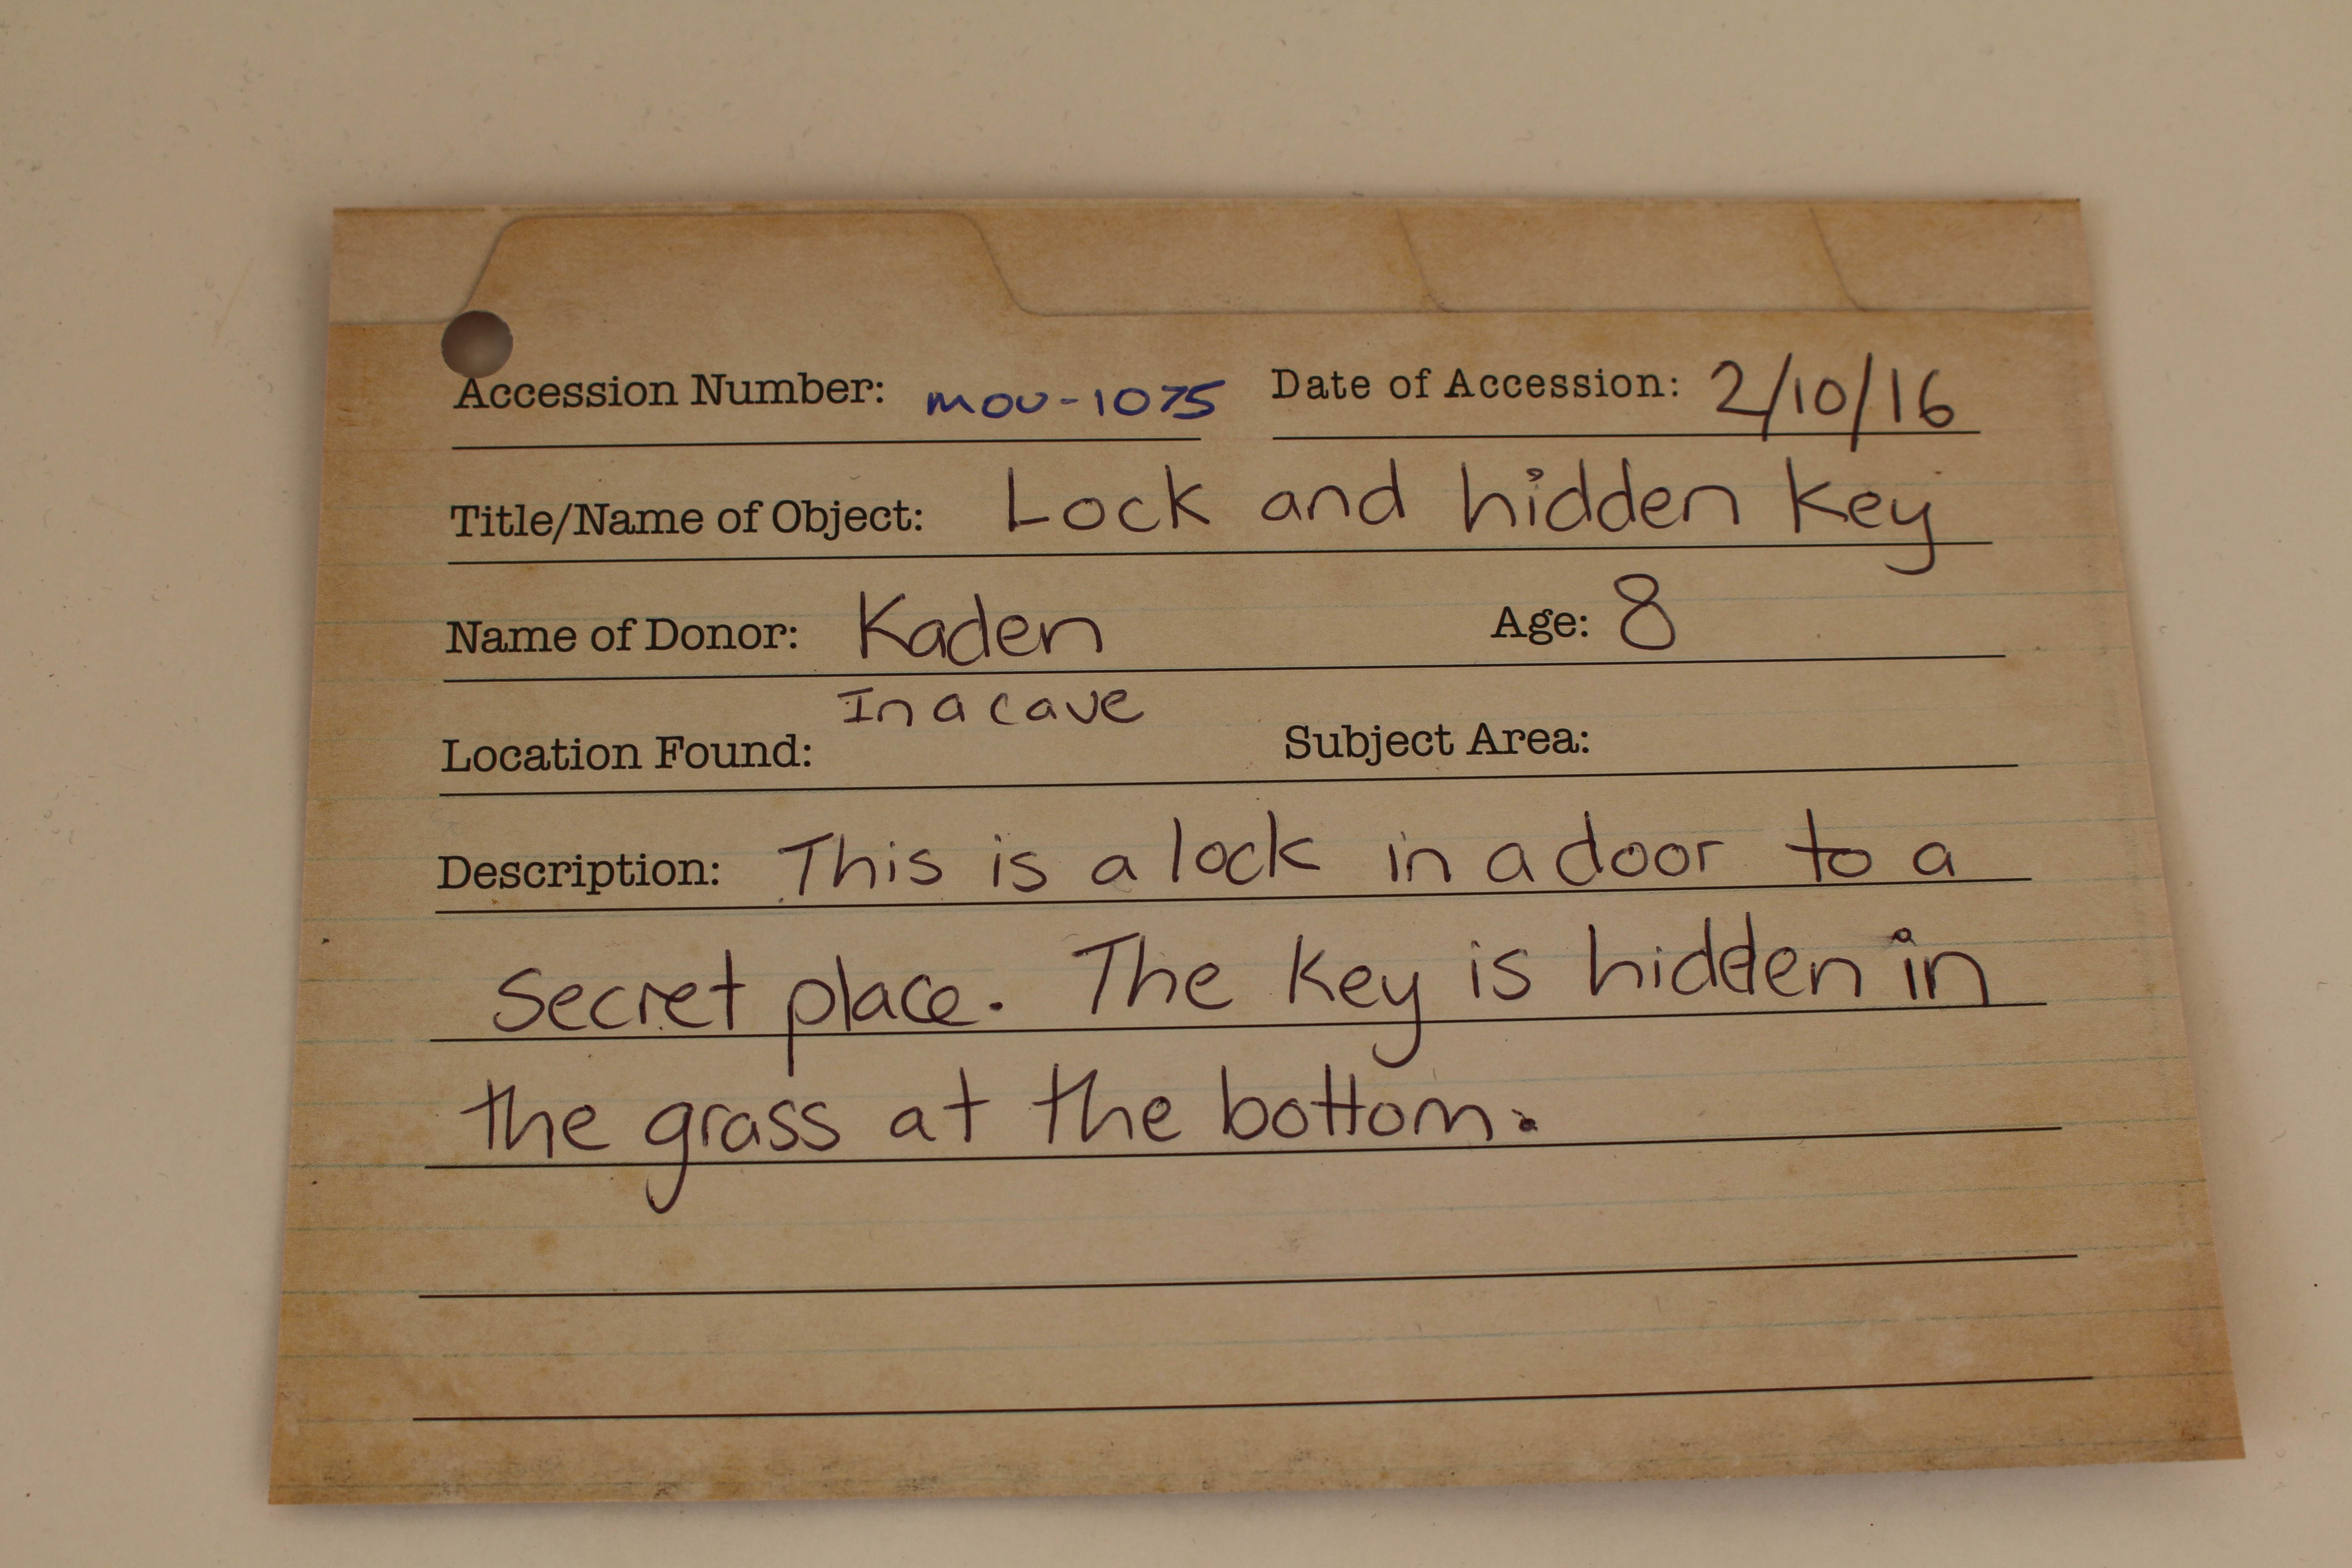 Accession Number: MOU-1075 Date of Accession: 2/10/16
Title/Name of Object: Lock and hidden key
Name of Donor: Kaden Age: 8
In a cave
Location Found: Subject Area:
Description: This is a lock in a door to a
secret place. The key is hidden in
the grass at the bottom.